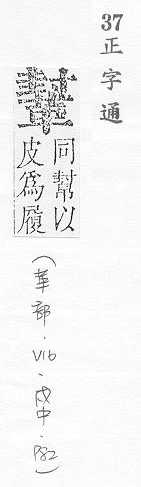 37
正字通
同幫以
皮爲履
(革部.V16.戌中.